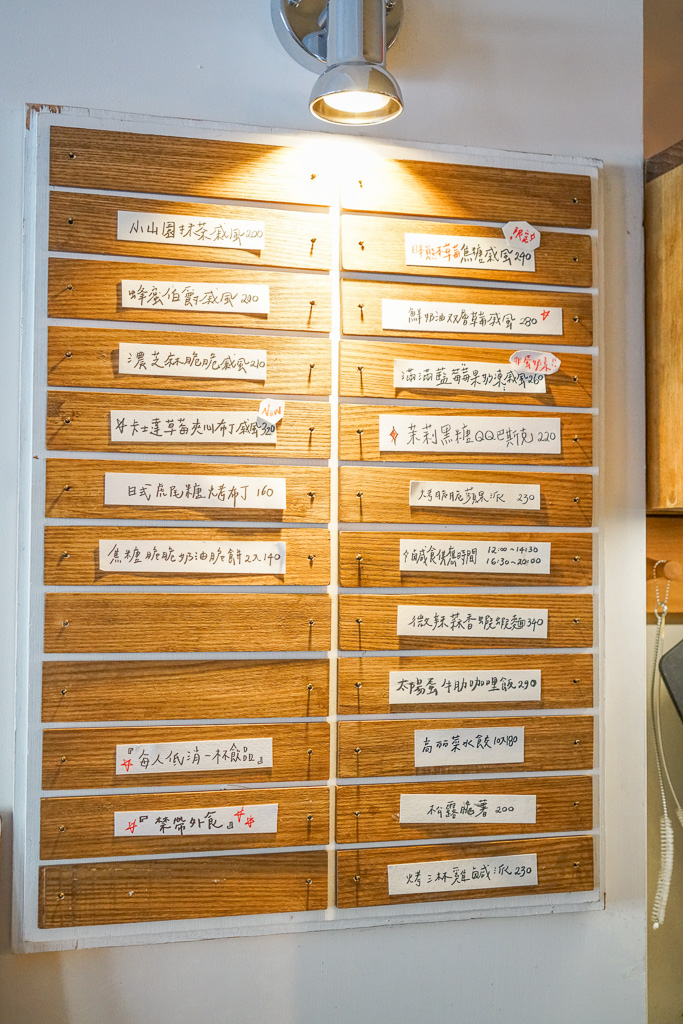 小山園抹茶戚風200
蜂蜜伯爵戚風200
濃芝麻脆脆戚風210
New
卡士達草莓夾心布丁戚風320
日式焦尾糖烤布丁160
焦糖脆脆奶油脆餅2入140
『每人低消一杯飲品』
『禁帶外食』
限定
草莓焦糖戚風290
鮮奶油双層草莓戚風280
滿滿藍莓果奶凍戚風260
茉莉黑糖QQ巴斯克220
烤脆脆蘋果派 230
鹹食供應時間 12:00~14:30
16:30~20:00
微辣蒜香蝦蝦麵340
太陽蛋牛肋咖哩飯290
高麗菜水餃10入180
松露脆薯 200
烤三杯雞鹹派230